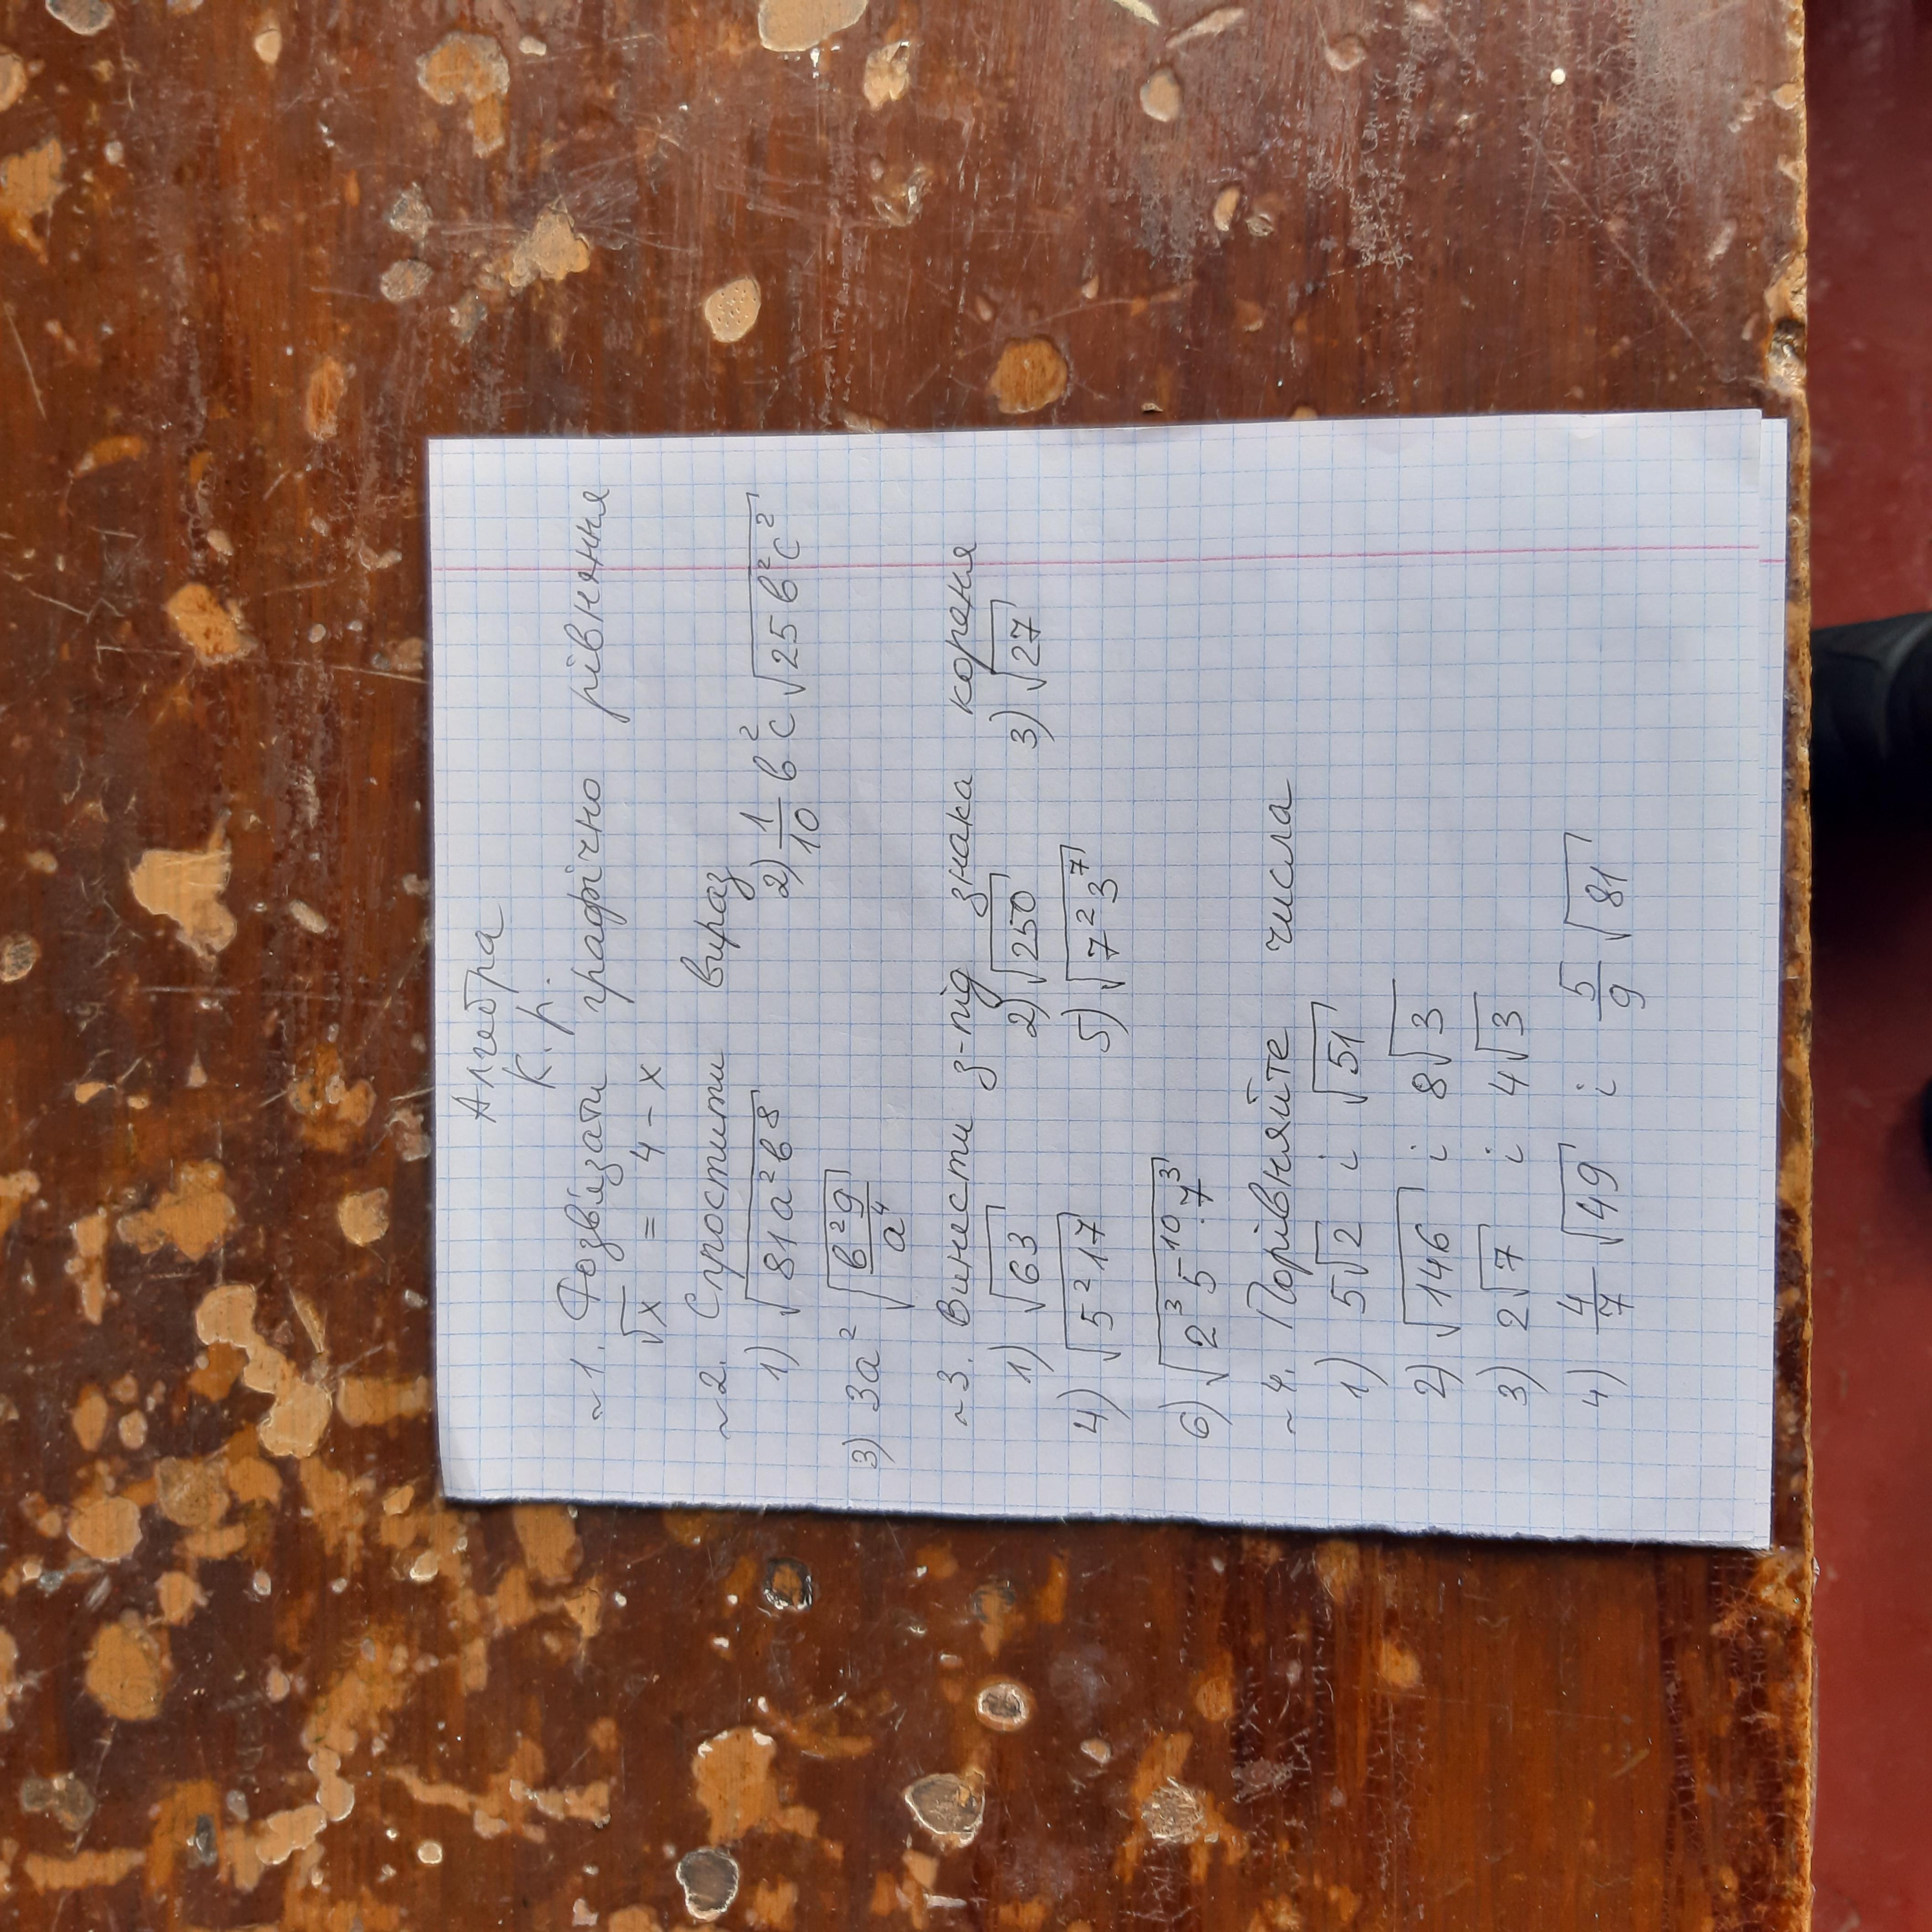 Алгебра
К.р.
~1. Розв'язати графічно рівняння
√x = 4 - x
~2. Спростити вираз
1) √81a²b⁸ 2) 1/10 b²c √25b²c²
3) 3a² √(b²9/a⁴)
~3. Винести з-під знака кореня
1) √63 2) √250 3) √27
4) √5²17 5) √7²3⁷
6) √2³5¹⁰·7³
~4. Порівняйте числа
1) 5√2 і √51
2) √146 і 8√3
3) 2√7 і 4√3
4) 4/7 √49 і 5/9 √81